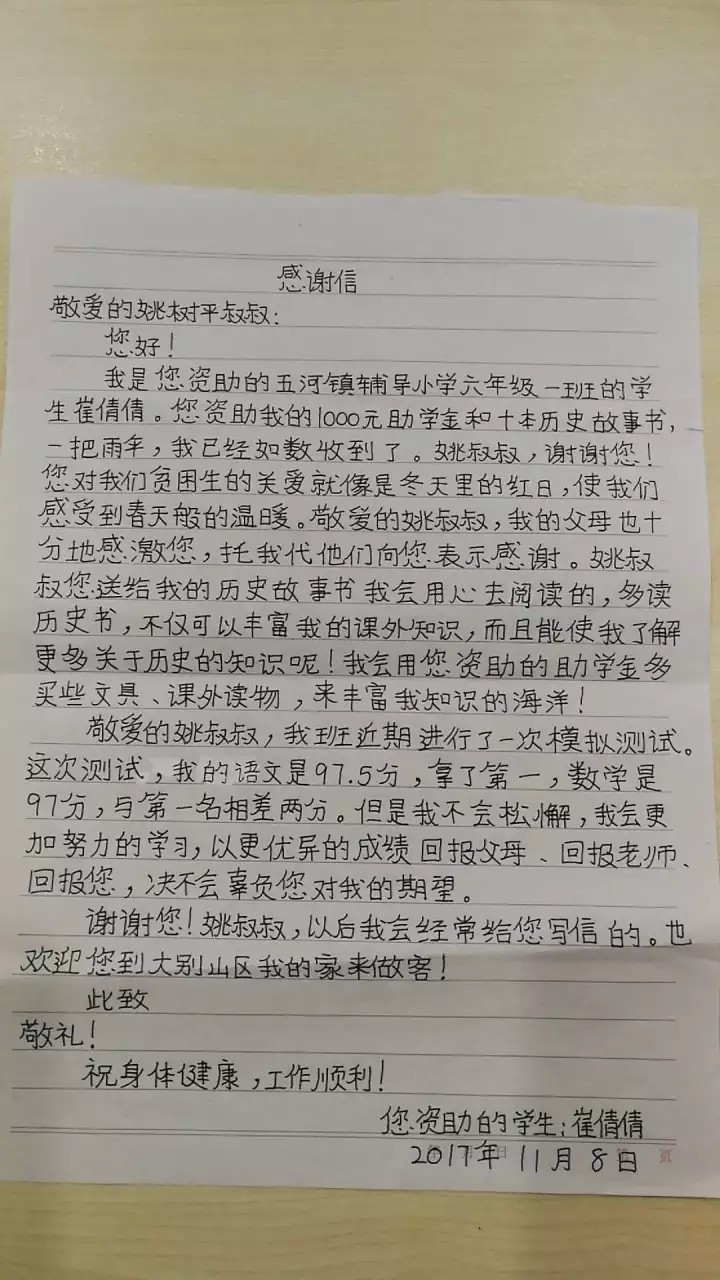 感谢信
敬爱的姚树平叔叔:
您好!
我是您资助的五河镇辅导小学六年级一班的学
生崔倩倩。您资助我的1000元助学金和十本历史故事书,
一把雨伞,我已经如数收到了。姚叔叔,谢谢您!
您对我们贫困生的关爱就像是冬天里的红日,使我们
感受到春天般的温暖。敬爱的姚叔叔,我的父母也十
分地感激您,托我代他们向您表示感谢。姚叔
叔您送给我的历史故事书我会用心去阅读的,多读
历史书,不仅可以丰富我的课外知识,而且能使我了解
更多关于历史的知识呢!我会用您资助的助学金多
买些文具、课外读物,来丰富我知识的海洋!
敬爱的姚叔叔,我班近期进行了一次模拟测试。
这次测试,我的语文是97.5分,拿了第一,数学是
97分,与第一名相差两分。但是我不会松懈,我会更
加努力的学习,以更优异的成绩回报父母、回报老师、
回报您,决不会辜负您对我的期望。
谢谢您!姚叔叔,以后我会经常给您写信的。也
欢迎您到大别山区我的家来做客!
此致
敬礼!
祝身体健康,工作顺利!
您资助的学生:崔倩倩
2017年11月8日
页